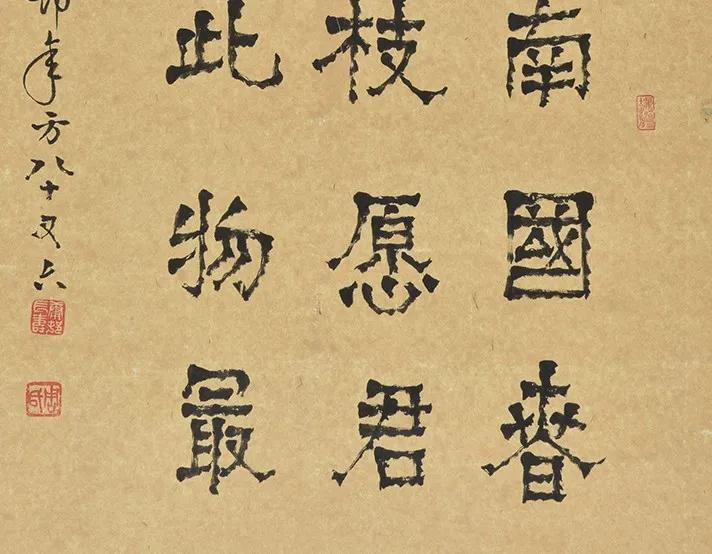 南國春
枝愿君
此物最
卯年方八十又六